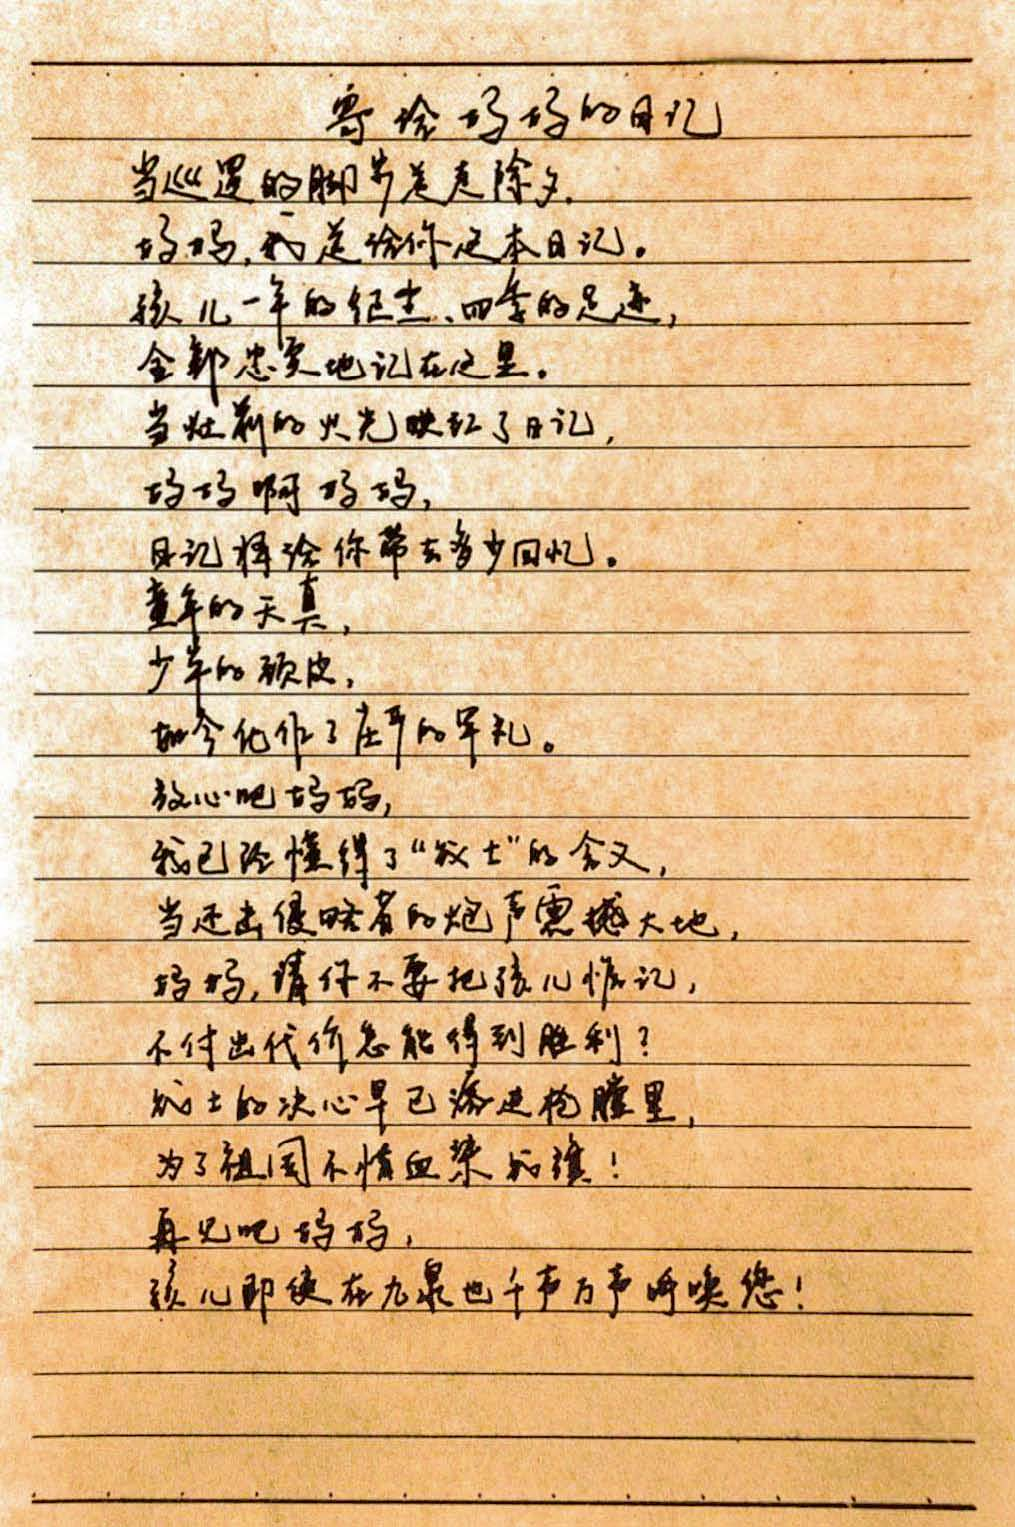 寄给妈妈的日记
当巡逻的脚步送走除夕.
妈妈,我送给你这本日记。
孩儿一年的纪念、四季的足迹,
全部忠实地记在这里。
当灶前的火光映红了日记,
妈妈啊妈妈,
日记将给你带去多少回忆。
童年的天真,
少年的顽皮,
如今化作了庄严的军礼。
放心吧妈妈,
我已经懂得了“战士”的含义,
当还击侵略者的炮声震撼大地,
妈妈,请你不要把孩儿惦记,
不付出代价怎能得到胜利?
战士的决心早已溶进枪膛里,
为了祖国不惜血染战旗!
再见吧妈妈,
孩儿即使在九泉也千声万声呼唤您!